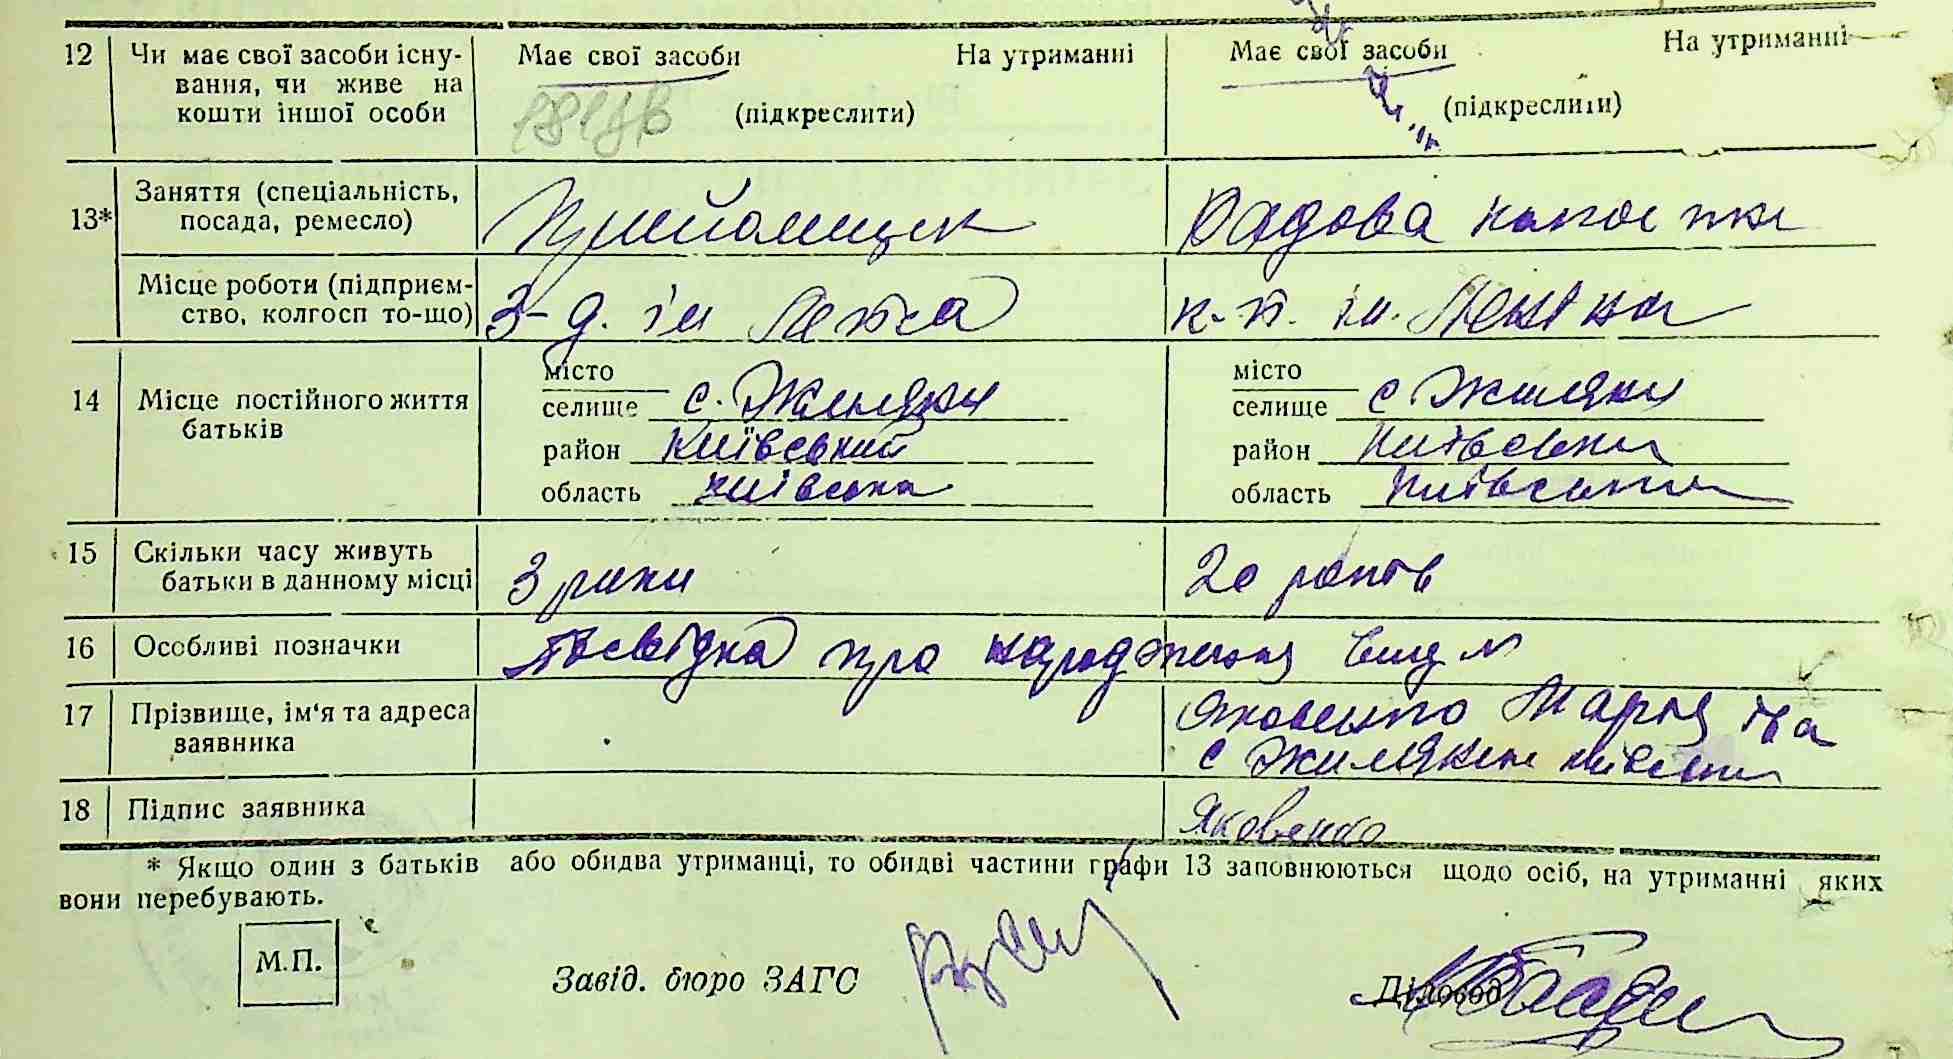 12 Чи має свої засоби існу- Має свої засоби На утриманні Має свої засоби На утриманні
вання, чи живе на
кошти іншої особи (підкреслити) (підкреслити)
Заняття (спеціальність,
13* посада, ремесло) Прийомщик Рядова
Місце роботи (підприєм-
ство, колгосп то-що) З-д. ім к-п. ім. Леніна
місто місто
14 Місце постійного життя селище с. Жиляни селище с Жиляни
батьків
район Київський район Київський
область Київська область Київська
15 Скільки часу живуть
батьки в данному місці 3 роки 20 років
16 Особливі позначки Посвідка про народження
17 Прізвище, ім‘я та адреса Яковенко Марія
заявника с
18 Підпис заявника Яковенко
* Якщо один з батьків або обидва утриманці, то обидві частини графи 13 заповнюються щодо осіб, на утриманні яких
вони перебувають.
М.П.
Завід. бюро ЗАГС Діловод